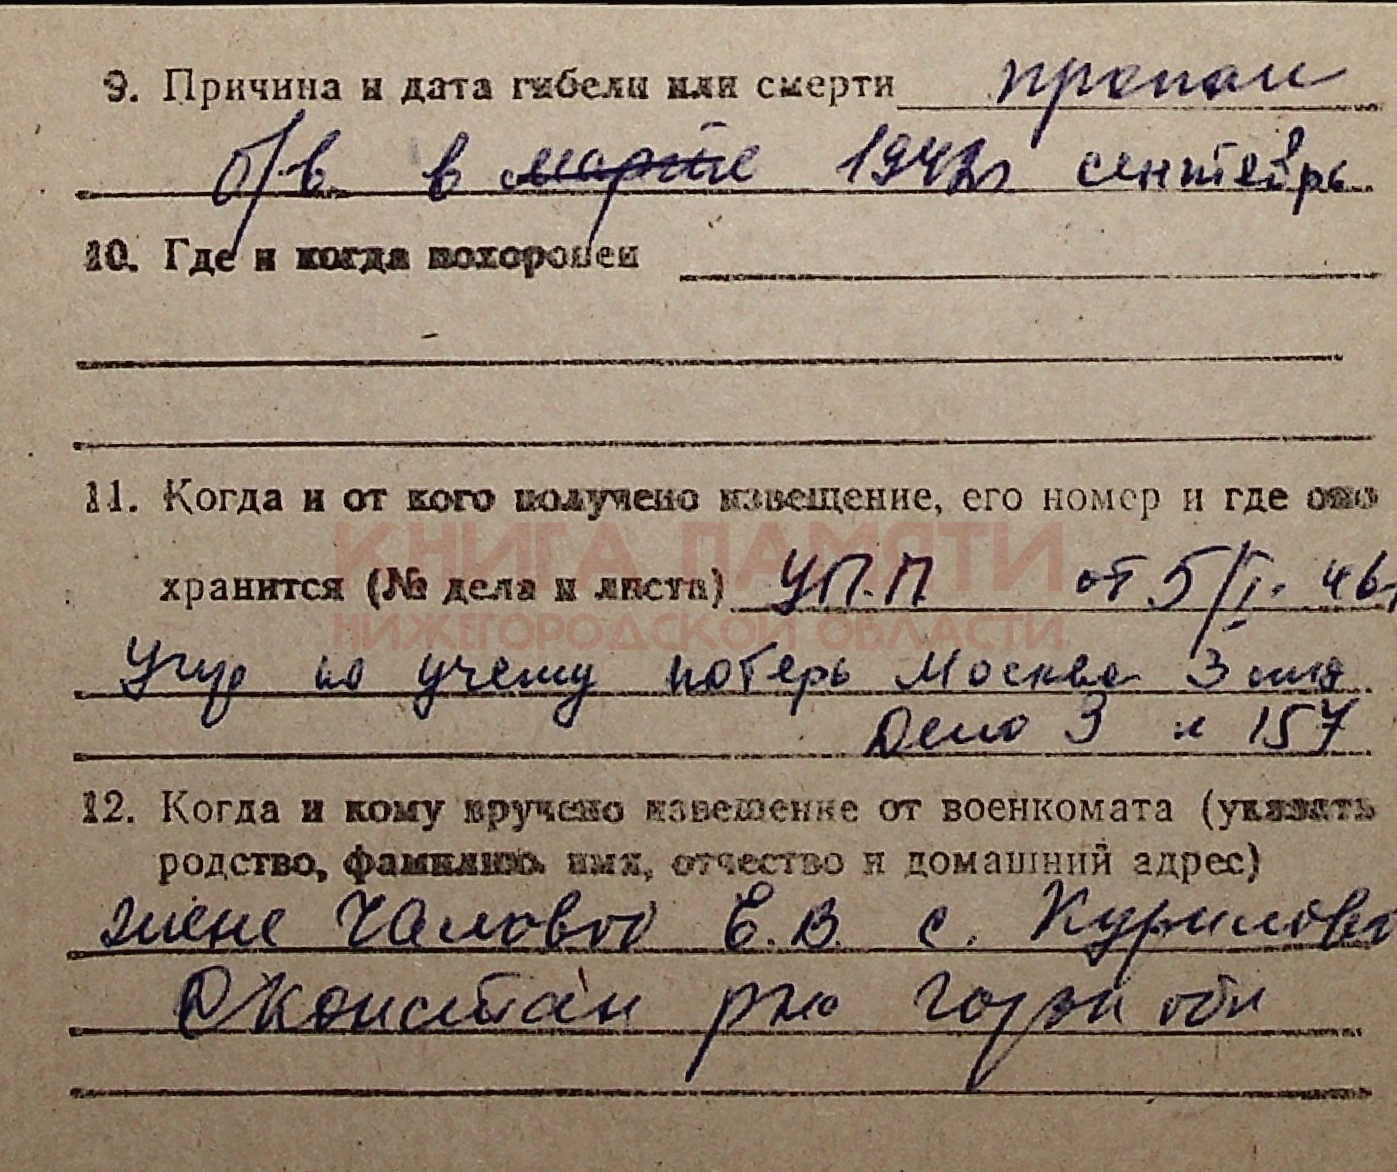 9. Причина и дата гибели или смерти пропал
б/в в марте 1942г сентябрь
10. Где и когда похоронен
11. Когда и от кого получено извещение, его номер и где оно
КНИГА ПАМЯТИ
хранится (№ дела и листа) УП.П от 5/I. 46г
НИЖЕГОРОДСКОЙ ОБЛАСТИ
Упр по учету потерь Москва 3
Дело 3 л 157
12. Когда и кому вручено извещение от военкомата (указать
родство, фамилию, имя, отчество и домашний адрес)
жене Чаловой Е.В. с. Курилово
Д Констан р-на Горьк обл